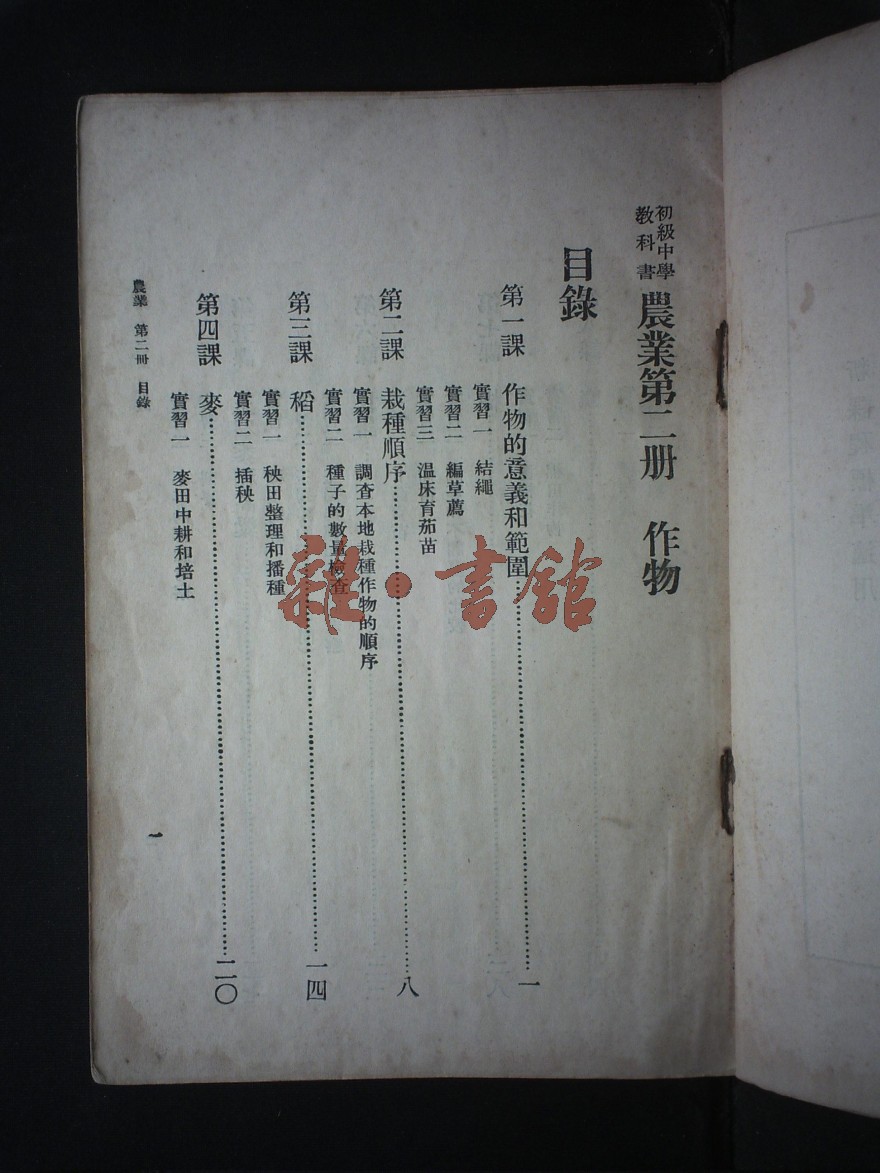 初級中學
教科書
農業第二册　作物
目錄
第一課　作物的意義和範圍……一
實習一　結繩
實習二　編草薦
實習三　温床育茄苗
第二課　栽種順序……八
實習一　調查本地栽種作物的順序
實習二　種子的數量檢查
第三課　稻……一四
實習一　秧田整理和播種
實習二　插秧
第四課　麥……二〇
實習一　麥田中耕和培土
農業　第二冊　目錄
一
雜·書館